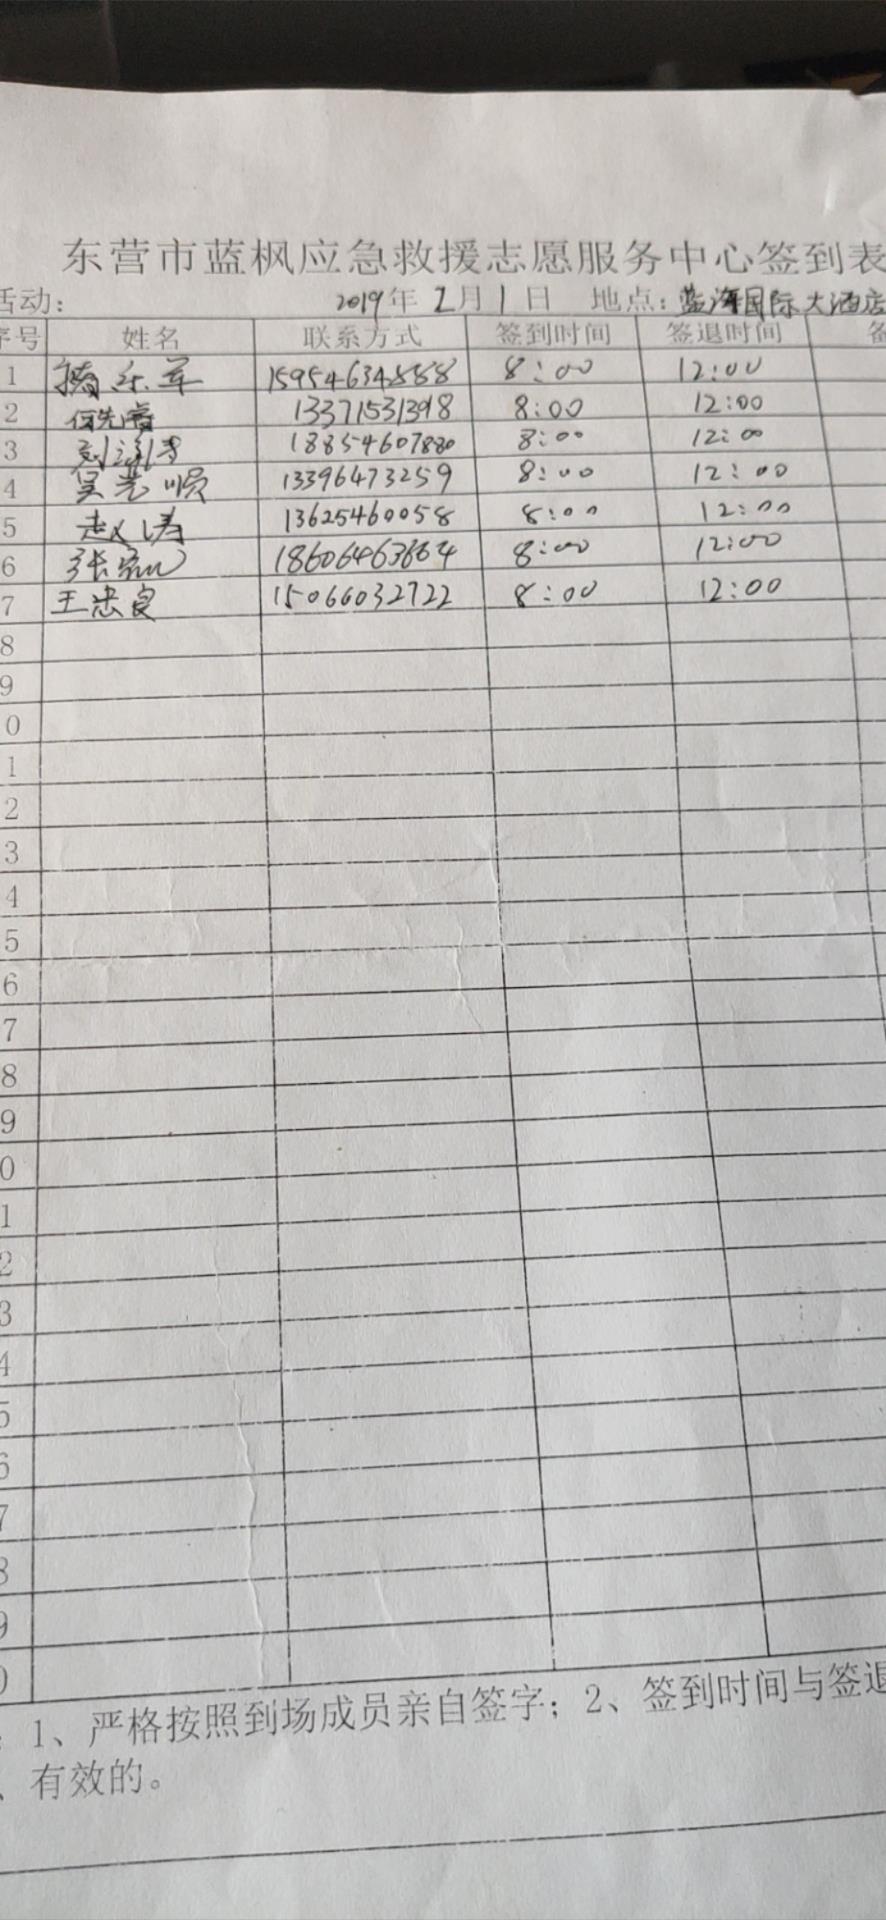 东营市蓝枫应急救援志愿服务中心签到表
活动： 2019年2月1日 地点：蓝海国际大酒店
序号 姓名 联系方式 签到时间 签退时间 备
1 15954634558 8:00 12:00
2 何先睿 13371531398 8:00 12:00
3 刘 18854607880 8:00 12:00
4 吴光顺 13396473259 8:00 12:00
5 赵义涛 13625460058 8:00 12:00
6 张 18606463664 8:00 12:00
7 王忠良 15066032722 8:00 12:00
8
9
0
1
2
3
4
5
6
7
8
9
0
1
2
3
4
5
6
7
8
9
0
：1、严格按照到场成员亲自签字；2、签到时间与签退
、有效的。